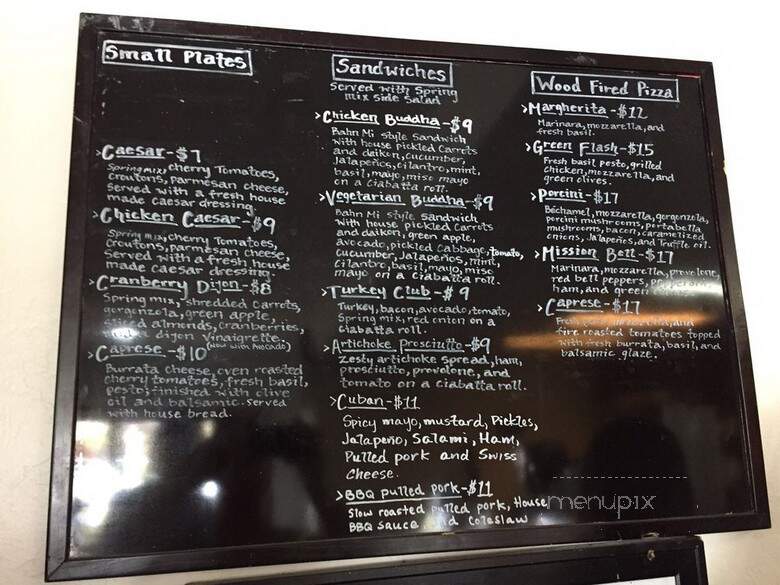 Small Plates
>Caesar-$7
Spring mix, cherry Tomatoes,
croutons, parmesan cheese,
served with a fresh house
made caesar dressing.
>Chicken Caesar-$9
Spring mix, cherry Tomatoes,
croutons, parmesan cheese,
served with a fresh house
made caesar dressing.
>Cranberry Dijon-$8
Spring mix, shredded carrots,
gorgonzola, green apple,
almonds, cranberries,
a dijon vinaigrette.
(Now with Avocado)
>Caprese-$10
Burrata cheese, oven roasted
cherry tomatoes, fresh basil,
pesto, finished with olive
oil and balsamic. Served
with house bread.
Sandwiches
Served with Spring
mix side salad
>Chicken Buddha-$9
Bahn Mi style sandwich
with house pickled carrots
and daikon, cucumber,
jalapeños, cilantro, mint,
basil, mayo, miso mayo
on a ciabatta roll.
>Vegetarian Buddha-$9
Bahn Mi style sandwich
with house pickled carrots
and daikon, green apple,
avocado, pickled cabbage, tomato,
cucumber, jalapeños, mint,
cilantro, basil, mayo, miso
mayo on a ciabatta roll.
>Turkey Club-$9
Turkey, bacon, avocado, tomato,
Spring mix, red onion on a
ciabatta roll.
>Artichoke Prosciutto-$9
zesty artichoke spread, ham,
prosciutto, provolone, and
tomato on a ciabatta roll.
>Cuban-$11
Spicy mayo, mustard, Pickles,
Jalapeño, Salami, Ham,
Pulled pork and Swiss
Cheese.
>BBQ pulled pork-$11
Slow roasted pulled pork, House
BBQ sauce and coleslaw
Wood Fired Pizza
>Margherita-$12
Marinara, mozzarella, and
fresh basil.
>Green Flash-$15
Fresh basil pesto, grilled
chicken, mozzarella, and
green olives.
>Porcini-$17
Béchamel, mozzarella, gorgonzola,
porcini mushrooms, portabella
mushrooms, bacon, caramelized
onions, jalapeños, and truffle oil.
>Mission Bell-$17
Marinara, mozzarella, provolone,
red bell peppers, pepperoni,
ham, and green
>Caprese-$17
and
fire roasted tomatoes topped
with fresh burrata, basil, and
balsamic glaze.
menupix